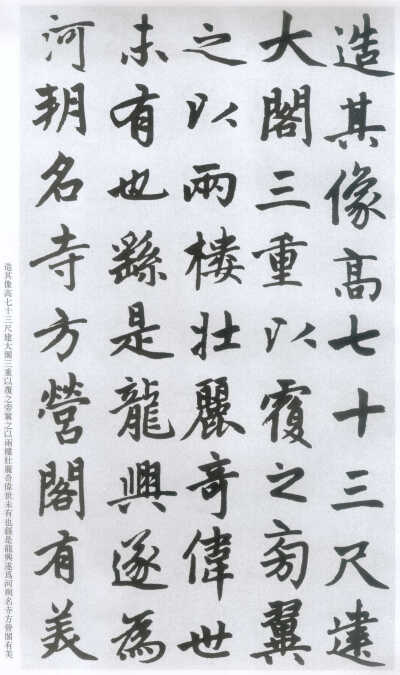 造其像高七十三尺建
大閣三重以覆之旁翼
之以兩樓壯麗奇偉世
未有也繇是龍興遂為
河朔名寺方營閣有美
造其像高七十三尺建大閣三重以覆之旁翼之以兩樓壯麗奇偉世未有也繇是龍興遂爲河朔名寺方營閣有美